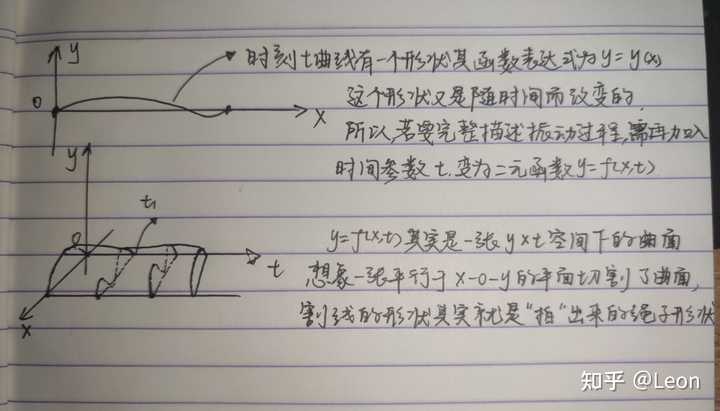 y
时刻t曲线有一个形状其函数表达式为y=y(x)
这个形状又是随时间而改变的.
0
x
所以,若要完整描述振动过程,需再加入
时间参数t.变为二元函数y=f(x,t)
y
t₁
0
t
x
y=f(x,t)其实是一张yxt空间下的曲面
想象一张平行于x-0-y的平面切割了曲面,
割线的形状其实就是"拍"出来的绳子形状
知乎 @Leon